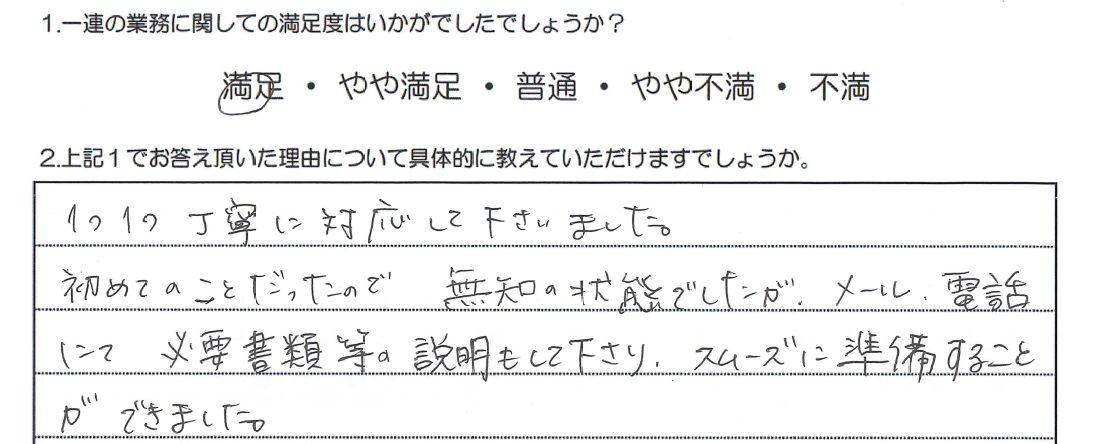 1.一連の業務に関しての満足度はいかがでしたでしょうか？
満足 ・ やや満足 ・ 普通 ・ やや不満 ・ 不満
2.上記１でお答え頂いた理由について具体的に教えていただけますでしょうか。
1つ1つ 丁寧に対応して下さいました。
初めてのことだったので 無知の状態でしたが、メール、電話
にて 必要書類等の説明もして下さり、スムーズに準備すること
が できました。